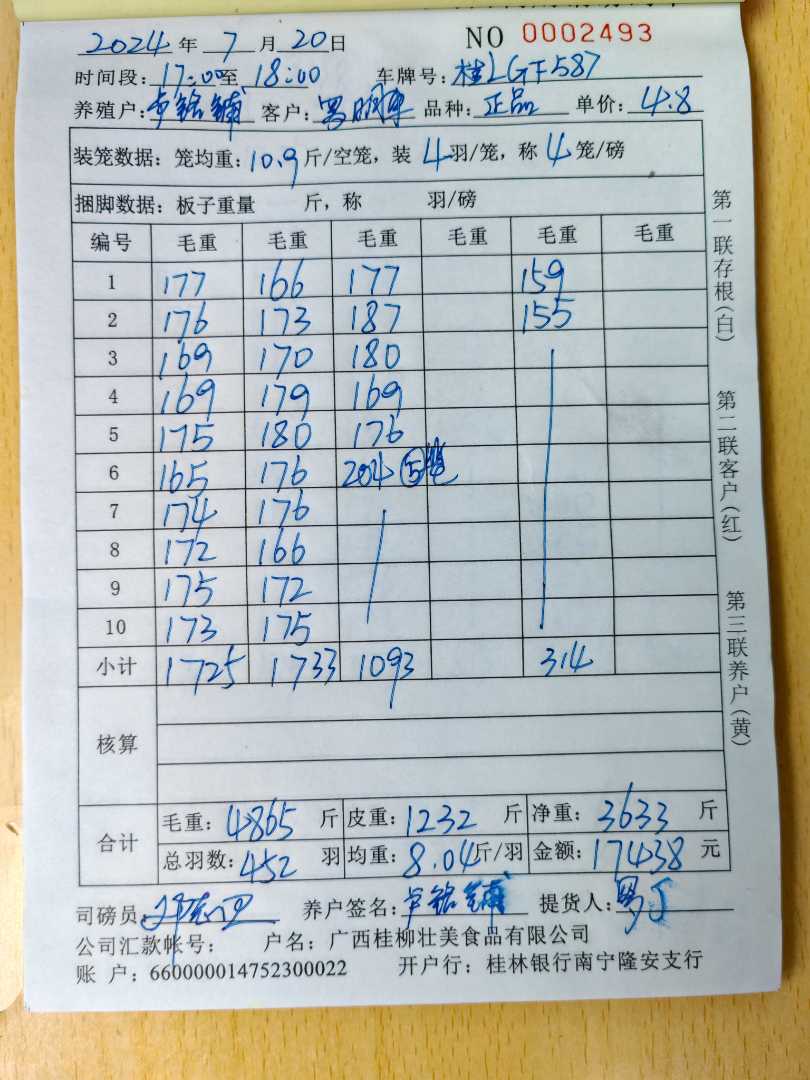 2024 年 7 月 20 日 NO 0002493
时间段: 17:00 至 18:00 车牌号: 桂LGF587
养殖户: 卢铭铺 客户: 品种: 正品 单价: 4.8
装笼数据: 笼均重: 10.9 斤/空笼, 装 4 羽/笼, 称 4 笼/磅
捆脚数据: 板子重量 斤, 称 羽/磅
编号 毛重 毛重 毛重 毛重 毛重 毛重
1 177 166 177 159
2 176 173 187 155
3 169 170 180
4 169 179 169
5 175 180 176
6 165 176 204 ⑤笼
7 174 176
8 172 166
9 175 172
10 173 175
小计 1725 1733 1093 314
核算
合计 毛重: 4865 斤 皮重: 1232 斤 净重: 3633 斤
总羽数: 452 羽 均重: 8.04 斤/羽 金额: 17438 元
司磅员: 养户签名: 卢铭铺 提货人:
公司汇款帐号: 户名: 广西桂柳壮美食品有限公司
账 户: 660000014752300022 开户行: 桂林银行南宁隆安支行
第一联存根(白)
第二联客户(红)
第三联养户(黄)